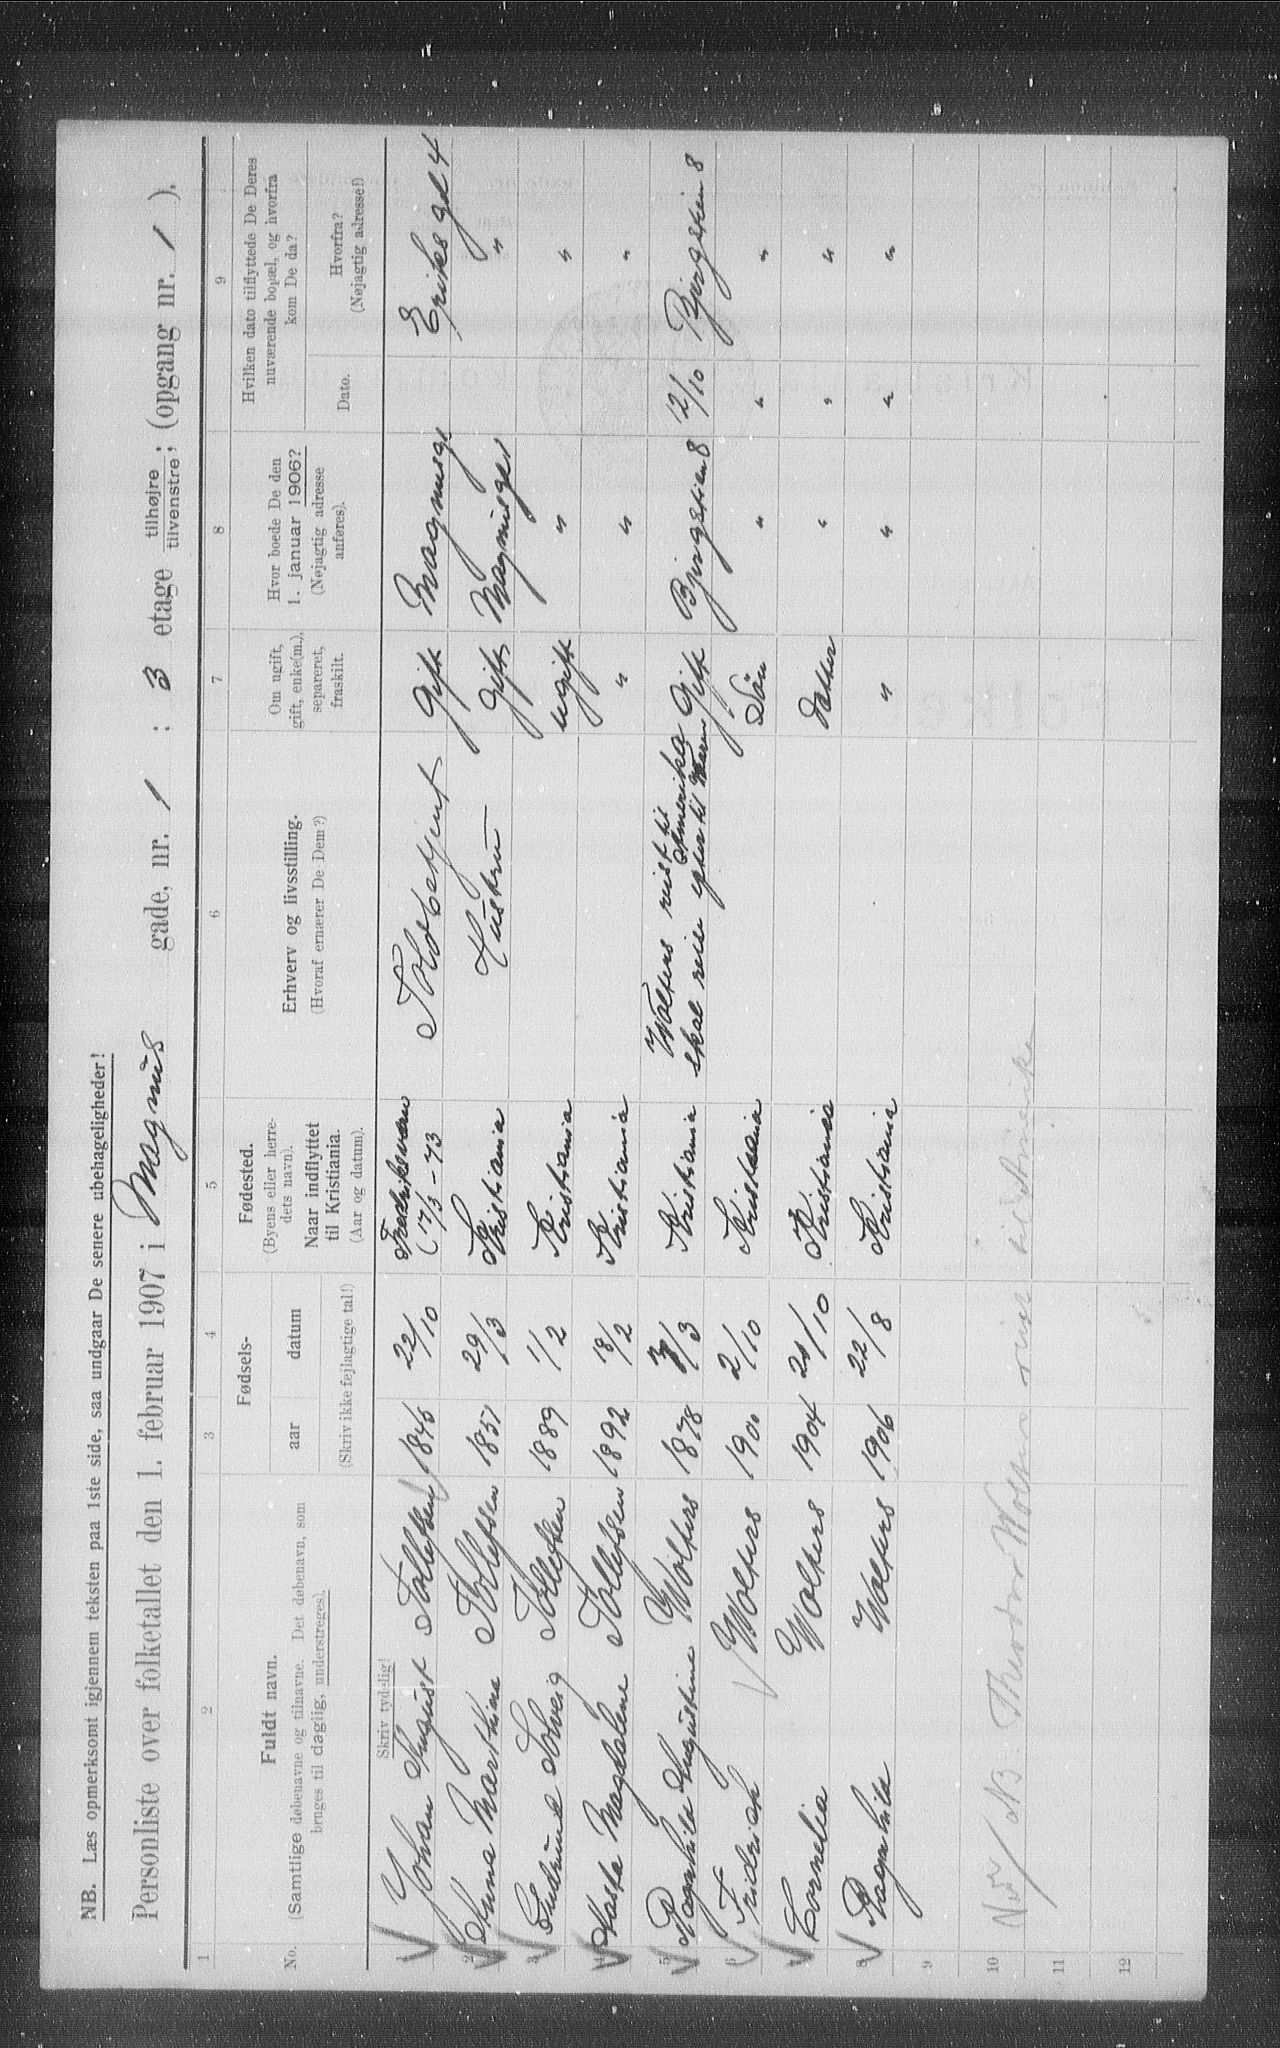 NB. Læs opmerksomt igjennem teksten paa 1ste side, saa undgaar De senere ubehageligheder!
Personliste over folketallet den 1. februar 1907 i Magnus gade, nr. 1 : 3 etage tilhøjre/tilvenstre; (opgang nr. 1 ).
1 2 3 4 5 6 7 8 9
No.
Fuldt navn.
(Samtlige døbenavne og tilnavne. Det døbenavn, som
bruges til daglig, understreges).
Fødsels-
aar datum
(Skriv ikke fejlagtige tal!)
Fødested.
(Byens eller herre-
dets navn).
Naar indflyttet
til Kristiania.
(Aar og datum).
Erhverv og livsstilling.
(Hvoraf ernærer De Dem?)
Om ugift,
gift, enke(m.),
separeret,
fraskilt.
Hvor boede De den
1. januar 1906?
(Nøjagtig adresse
anføres).
Hvilken dato tilflyttede De Deres
nuværende bopæl, og hvorfra
kom De da?
Dato.
Hvorfra?
(Nøjagtig adresse!)
Skriv tydelig!
Johan August Tollefsen 1846 22/10 Fredriksværn (17/3-73 Toldbetjent Gift Magnusgd Eriks gd 4
2 Anna Marthina Tollefsen 1851 29/3 Kristiania Hustru Gift Magnusgd "
3 Gudrund Solveig Tollefsen 1889 1/2 Kristiania ugift " "
4 Aasta Magdalene Tollefsen 1892 18/2 Kristiania " " "
5 Ragnhild Augustine Wolters 1878 /3 Kristiania Wolters reist til Amerika skal reise efter til Gift Bjergstien 8 12/10 Bjergstien 8
6 Fridrich Wolters 1900 2/10 Kristiania Søn " " "
Cornelia Wolters 1904 20/10 Kristiania datter " " "
8 Ragnhild Wolters 1906 22/8 Kristiania " " " "
9
10 NB. Theodor Wolters reist til Amerika
11
12